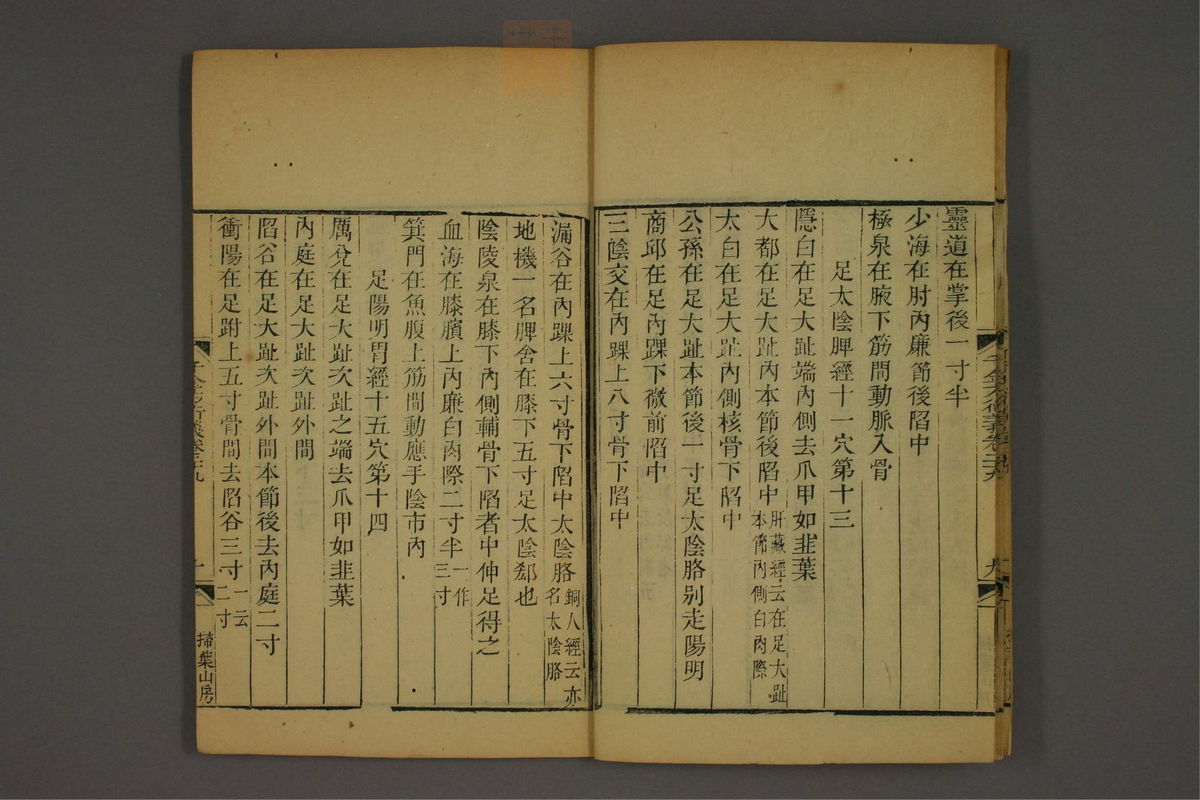 靈道在掌後一寸半
少海在肘內廉節後陷中
極泉在腋下筋間動脈入骨
足太陰脾經十一穴第十三
隱白在足大趾端內側去爪甲如韭葉
大都在足大趾內本節後陷中肝藏經云在足大趾本節內側白肉際
太白在足大趾內側核骨下陷中
公孫在足大趾本節後一寸足太陰胳別走陽明
商邱在足內踝下微前陷中
三陰交在內踝上八寸骨下陷中
漏谷在內踝上六寸骨下陷中太陰胳銅人經云亦名太陰胳
地機一名脾舍在膝下五寸足太陰郄也
陰陵泉在膝下內側輔骨下陷者中伸足得之
血海在膝臏上內廉白肉際二寸半一作三寸
箕門在魚腹上筋間動應手陰市內
足陽明胃經十五穴第十四
厲兌在足大趾次趾之端去爪甲如韭葉
內庭在足大趾次趾外間
陷谷在足大趾次趾外間本節後去內庭二寸
衝陽在足跗上五寸骨間去陷谷三寸一云二寸
掃葉山房